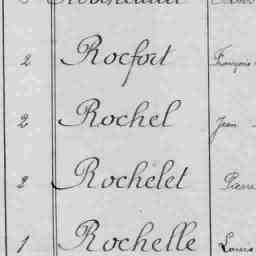 2 Rocfort François
2 Rochel Jean
2 Rochelet Pierre
1 Rochelle Louis